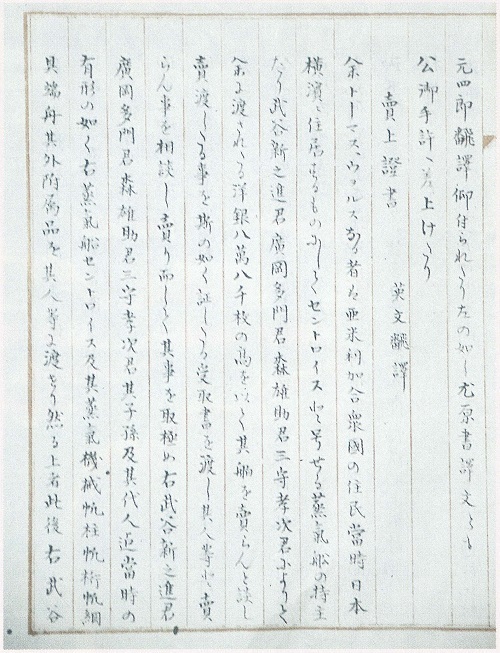 元四郎飜譯仰付られたり左の如し尤原書譯文とも
公御手許へ差上けたり
賣上證書
英文飜譯
余トーマス、ウヲルスなる者は亜米利加合衆國の住民當時日本
横濱に住居するものにしてセントロイスと号せる蒸氣船の持主
たり武谷新之進君廣岡多門君森雄助君三宅孝次君よりして
余に渡されたる洋銀八萬八千枚の高を以て其舩を賣らんと談し
賣渡したる事を斯の如く証したる受取書を渡し其人等に賣
らん事を相談し賣り而して其事を取極め右武谷新之進君
廣岡多門君森雄助君三宅孝次君其子孫及其代人迠當時の
有形の如く右蒸氣舩セントロイス及其蒸氣機械帆柱帆桁帆綱
其端舟其外附属品を其人等に渡せり然る上者此後右武谷